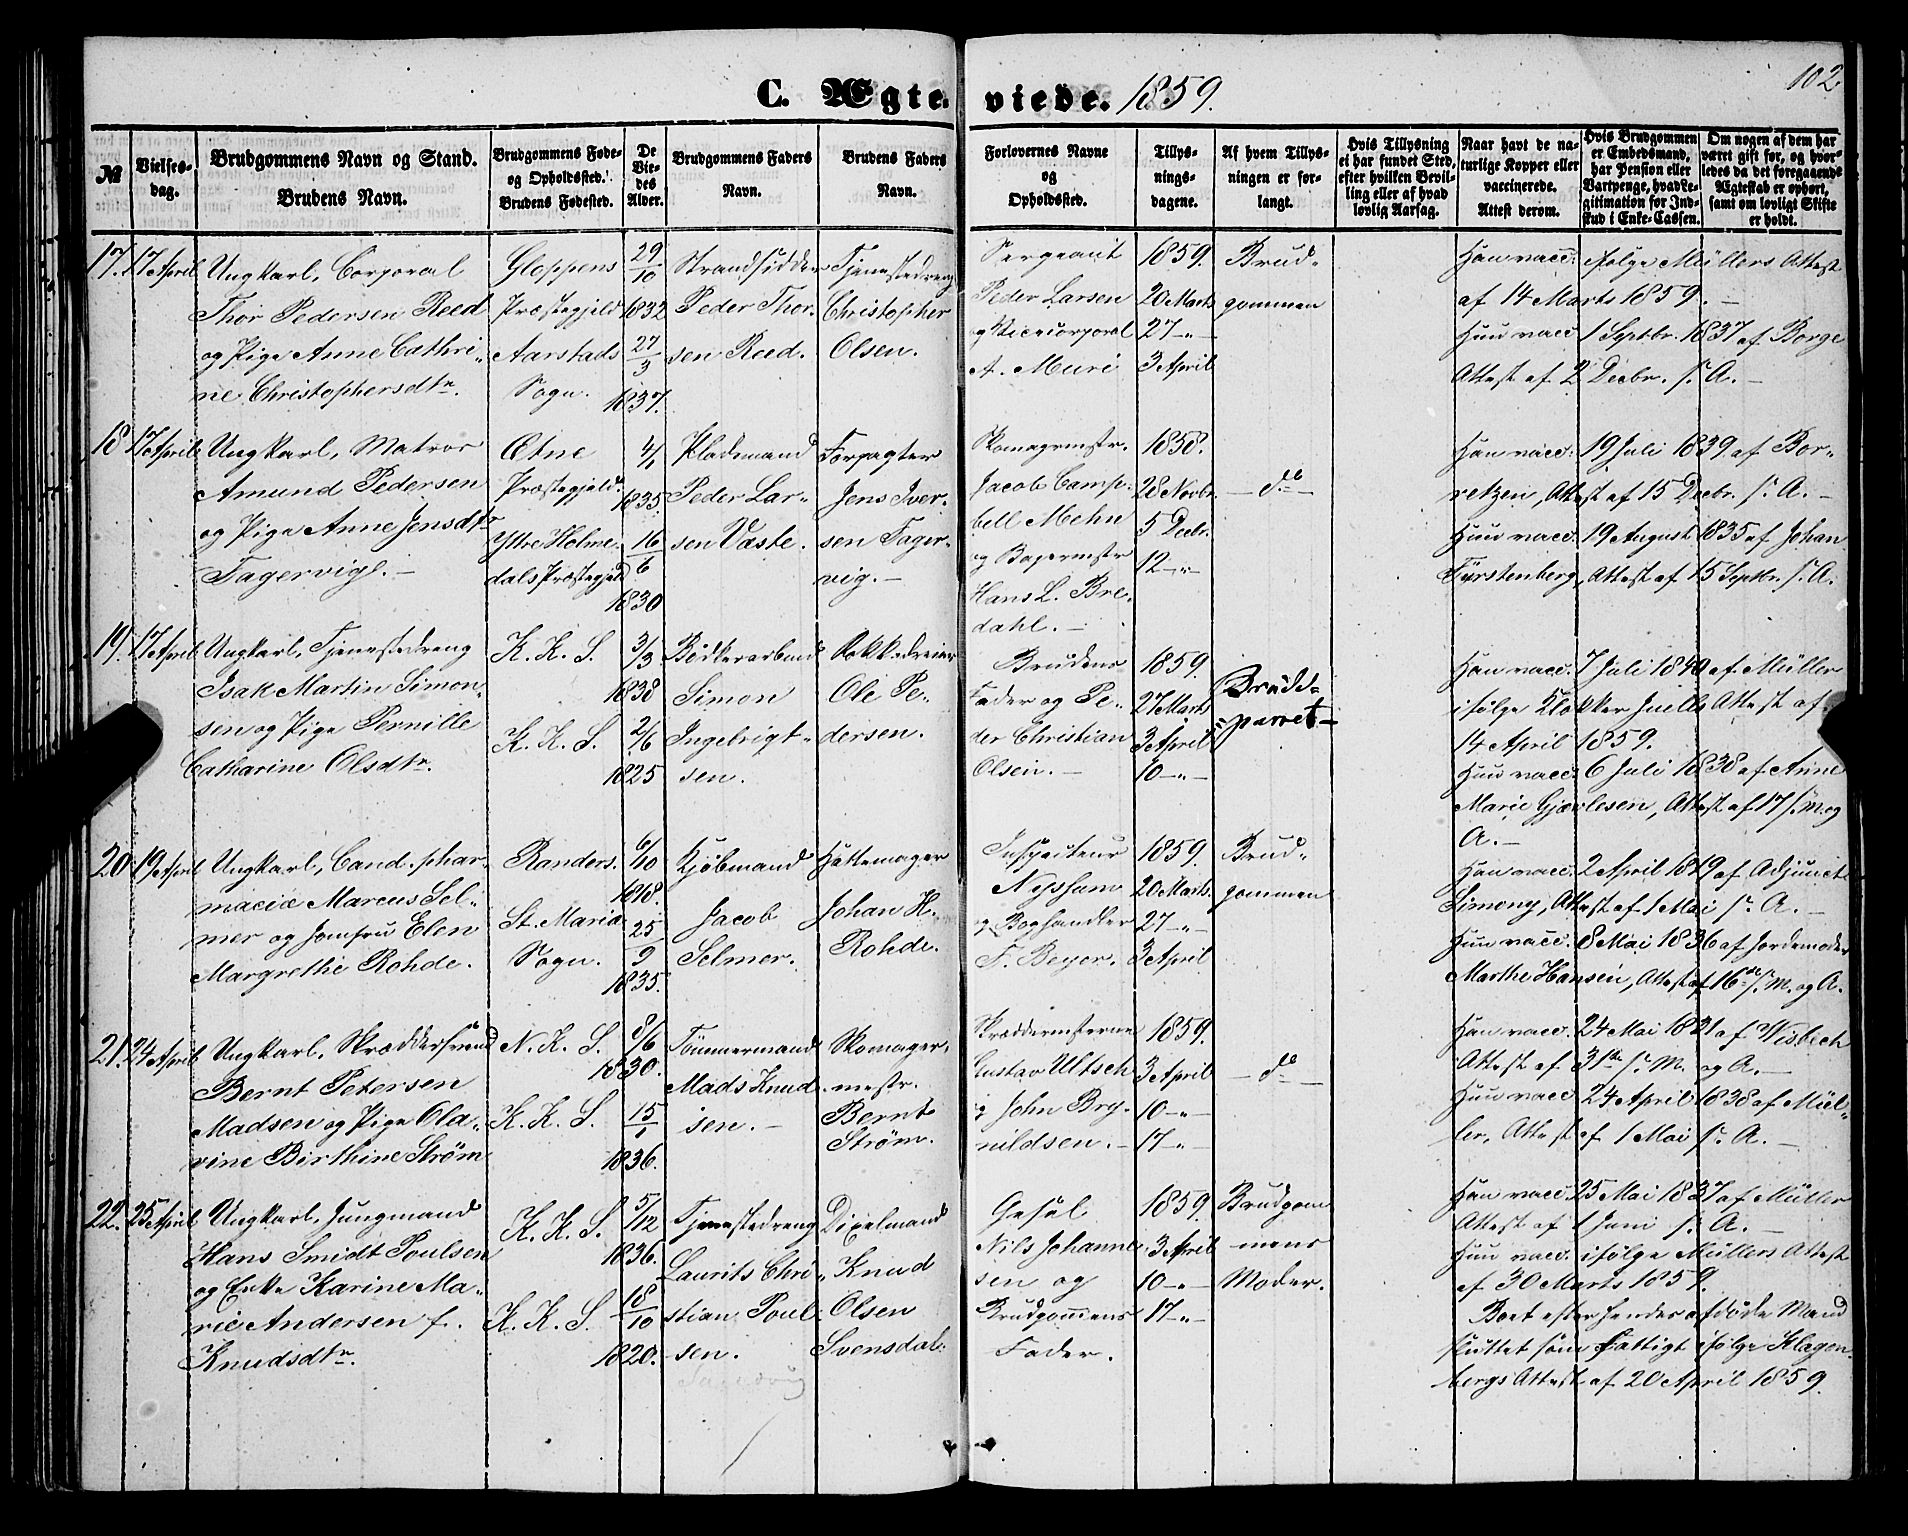 102
C. Ægteviede. 1859.
№
Vielsesdag.
Brudgommens Navn og Stand.
Brudens Navn.
Brudgommens Føde- og Opholdssted.
Brudens Fødested.
De Viedes Alder.
Brudgommens Faders Navn.
Brudens Faders Navn.
Forlovernes Navne og Opholdssted.
Tillysningsdagene.
Af hvem Tillysningen er forlangt.
Hvis Tillysning ei har fundet Sted, efter hvilken Bevilling eller af hvad lovlig Aarsag.
Naar havt de naturlige Kopper eller vaccinerede. Attest derom.
Hvis Brudgommen er Embedsmand, har Pension eller Vartpenge, hvad Legitimation for Indskud i Enke-Cassen.
Om nogen af dem har været gift før, og hvorledes da det foregaaende Ægteskab er ophørt, samt om lovligt Skifte er holdt.
17. 17 April
Ungkarl, Corporal
Thor Pedersen Reed
og Pige Anne Cathri-
ne Christophersdtr.
Gloppens
Præstegjeld
Aarstads
Sogn.
29/10
1832
27/3
1837.
Strandsidder
Peder Thor-
sen Reed.
Tjenestedreng
Christopher
Olsen.
Sergeant
Peder Larsen
og Vicecorporal
A. Muri
1859.
20 Marts
27 -"-
3 April
Brud-
gommen
Han vacc: ifølge Müllers Attest
af 14 Marts 1859. -
Hun vacc 1 Septbr. 1837 af Borge
Attest af 2 Decbr. s. A. -
18 17 April
Ungkarl, Matros
Amund Pedersen
og Pige Anne Jensdtr
Fagervigl. -
Etne
Præstegjeld.
Yttre Holme-
dals Præstegjeld
4/1
1835.
16/6
1830
Pladsmand
Peder Lar-
sen Væste.
Forpagter
Jens Iver-
sen Fager-
vig. -
Skomagermstr.
Jacob Camp-
bell Mehn
og Bagermstr
Hans L. Bre-
dahl. -
1858.
28 Novbr.
5 Decbr.
12 -"-
- do -
Han vacc: 19 Juli 1839 af Bor-
retzen, Attest af 15 Decbr. s. A. -
Hun vacc. 19 August 1835 af Johan
Fyrstenberg, Attest af 15 Septbr. s. A.
19. 17 April
Ungkarl, Tjenestedreng
Isak Martin Simon-
sen og Pige Pernille
Catharine Olsdtr.
K. K. S.
K. K. S.
3/3
1838
2/6
1825
Bødkerarbeid
Simon
Ingebrigt-
sen.
Rokkedreier
Ole Pe-
dersen.
Brudens
Fader og Pe-
der Christian
Olsen. -
1859.
27 Marts
3 April
10 -"-
Brud-
parret -
Han vacc. 7 Juli 1840 af Müller
ifølge Klokker Juells Attest af
14 April 1859.
Hun vacc: 6 Juli 1838 af Anne
Marie Gjærlesen, Attest af 17 s. M. og
A. -
20 19 April
Ungkarl, Cand. phar-
maciæ Marcus Sel-
mer og Jomfru Elen
Margrethe Rohde.
Randers.
St. Maria
Sogn.
6/10
1818.
25/9
1835.
Kjøbmand
Jacob
Selmer.
Hattemager
Johan H.
Rohde.
Inspecteur
Nyssum
og Boghandler
F. Beyer.
1859.
20 Marts.
27 -"-
3 April
Brud-
gommen
Han vacc: 2 April 1819 af Adjunct
Simony, Attest af 1 Mai s. A. -
Hun vacc. 8 Mai 1836 af Jordemoder
Marthe Hansen, Attest af 16de s. M. og A.
21. 24 April
Ungkarl, Skræddersvend
Bernt Petersen
Madsen og Pige Ola-
vine Birthine Strøm
N. K. S.
K. K. S.
8/6
1830.
15/1
1836.
Tømmermand
Mads Knud-
sen. -
Skomager-
mestr.
Bernt
Strøm.
Skræddermsterne
Gustav Ultsch
og John Bry-
nildsen. -
1859.
3 April
10 -"-
17 -"-
- do -
Han vacc. 24 Mai 1831 af Wisbech
Attest af 31te s. M. og A. -
Hun vacc 24 April 1838 af Mül-
ler, Attest af 1 Mai s. A. -
22. 25 April
Ungkarl, Jungmand
Hans Smidt Poulsen
og Enke Karine Ma-
rie Andersen f.
Knudsdtr.
K. K. S.
K. K. S.
5/12
1836.
18/10
1820.
Tjenestedreng
Laurits Chri-
stian Poul-
sen.
Dixelmand
Knud
Olsen
Svensdal.
Gesel
Nils Johanne-
sen og
Brudgommens
Fader.
1859.
3 April
10 -"-
17 -"-
Brudgom
mens
Moder.
Han vacc. 25 Mai 1837 af Müller
Attest af 1 Juni s. A. -
Hun vacc. ifølge Müllers Attest
af 30 Marts 1859.
Boet efter hendes afdøde Mand
sluttet som fattigt ifølge Klagen-
bergs Attest af 20 April 1859.